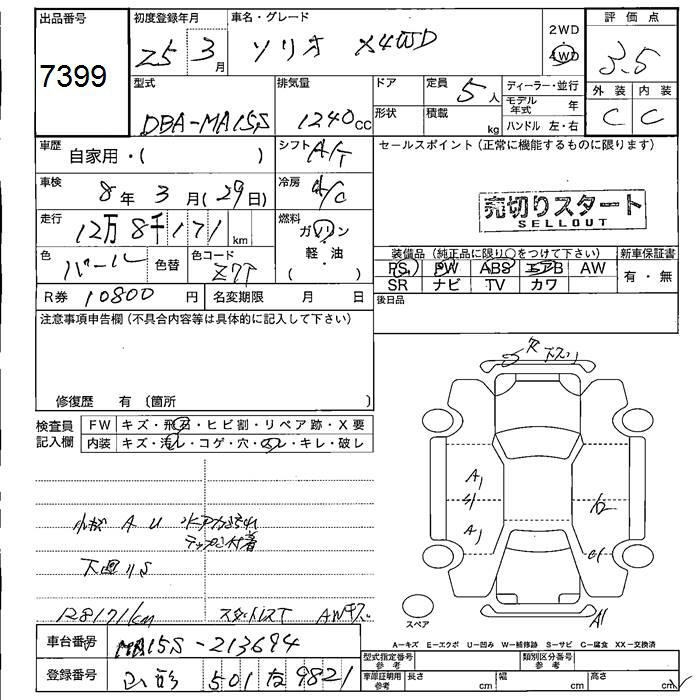 出品番号
7399
初度登録年月
25 3月
車名・グレード
ソリオ X4WD
2WD
4WD
評価点
3.5
外装 内装
C C
型式
DBA-MA15S
排気量
1240cc
ドア
形状
定員 5人
積載 kg
ディーラー・並行
モデル年式 年
ハンドル 左・右
車歴 自家用・( )
シフト A/T
セールスポイント(正常に機能するものに限ります)
車検 8年 3月(29日)
冷房 A/C
売切りスタート
SELLOUT
走行 12万8千171km
燃料 ガソリン
軽・油
( )
色 パール
色替
色コード Z7T
装備品(純正品に限り○をつけて下さい)
新車保証書
PS PW ABS エアB AW
SR ナビ TV カワ
有・無
R券 10800円
名変期限 月 日
後日品
注意事項申告欄(不具合内容等は具体的に記入して下さい)
修復歴 有(箇所 )
検査員記入欄
FW キズ・飛石・ヒビ割・リペア跡・X要
内装 キズ・汚レ・コゲ・穴・スレ・キレ・破レ
小キズ A U
下廻りS
128171km
スタッドレスT AWキズ
A1
A1
A1
スペア
A-キズ E-エクボ U-凹み W-補修跡 S-サビ C-腐食 XX-交換済
車台番号 MA15S-213694
登録番号 山形 501 な 9821
型式指定番号 参考
類別区分番号 参考
車庫証明用 参考
長さ cm
幅 cm
高さ cm